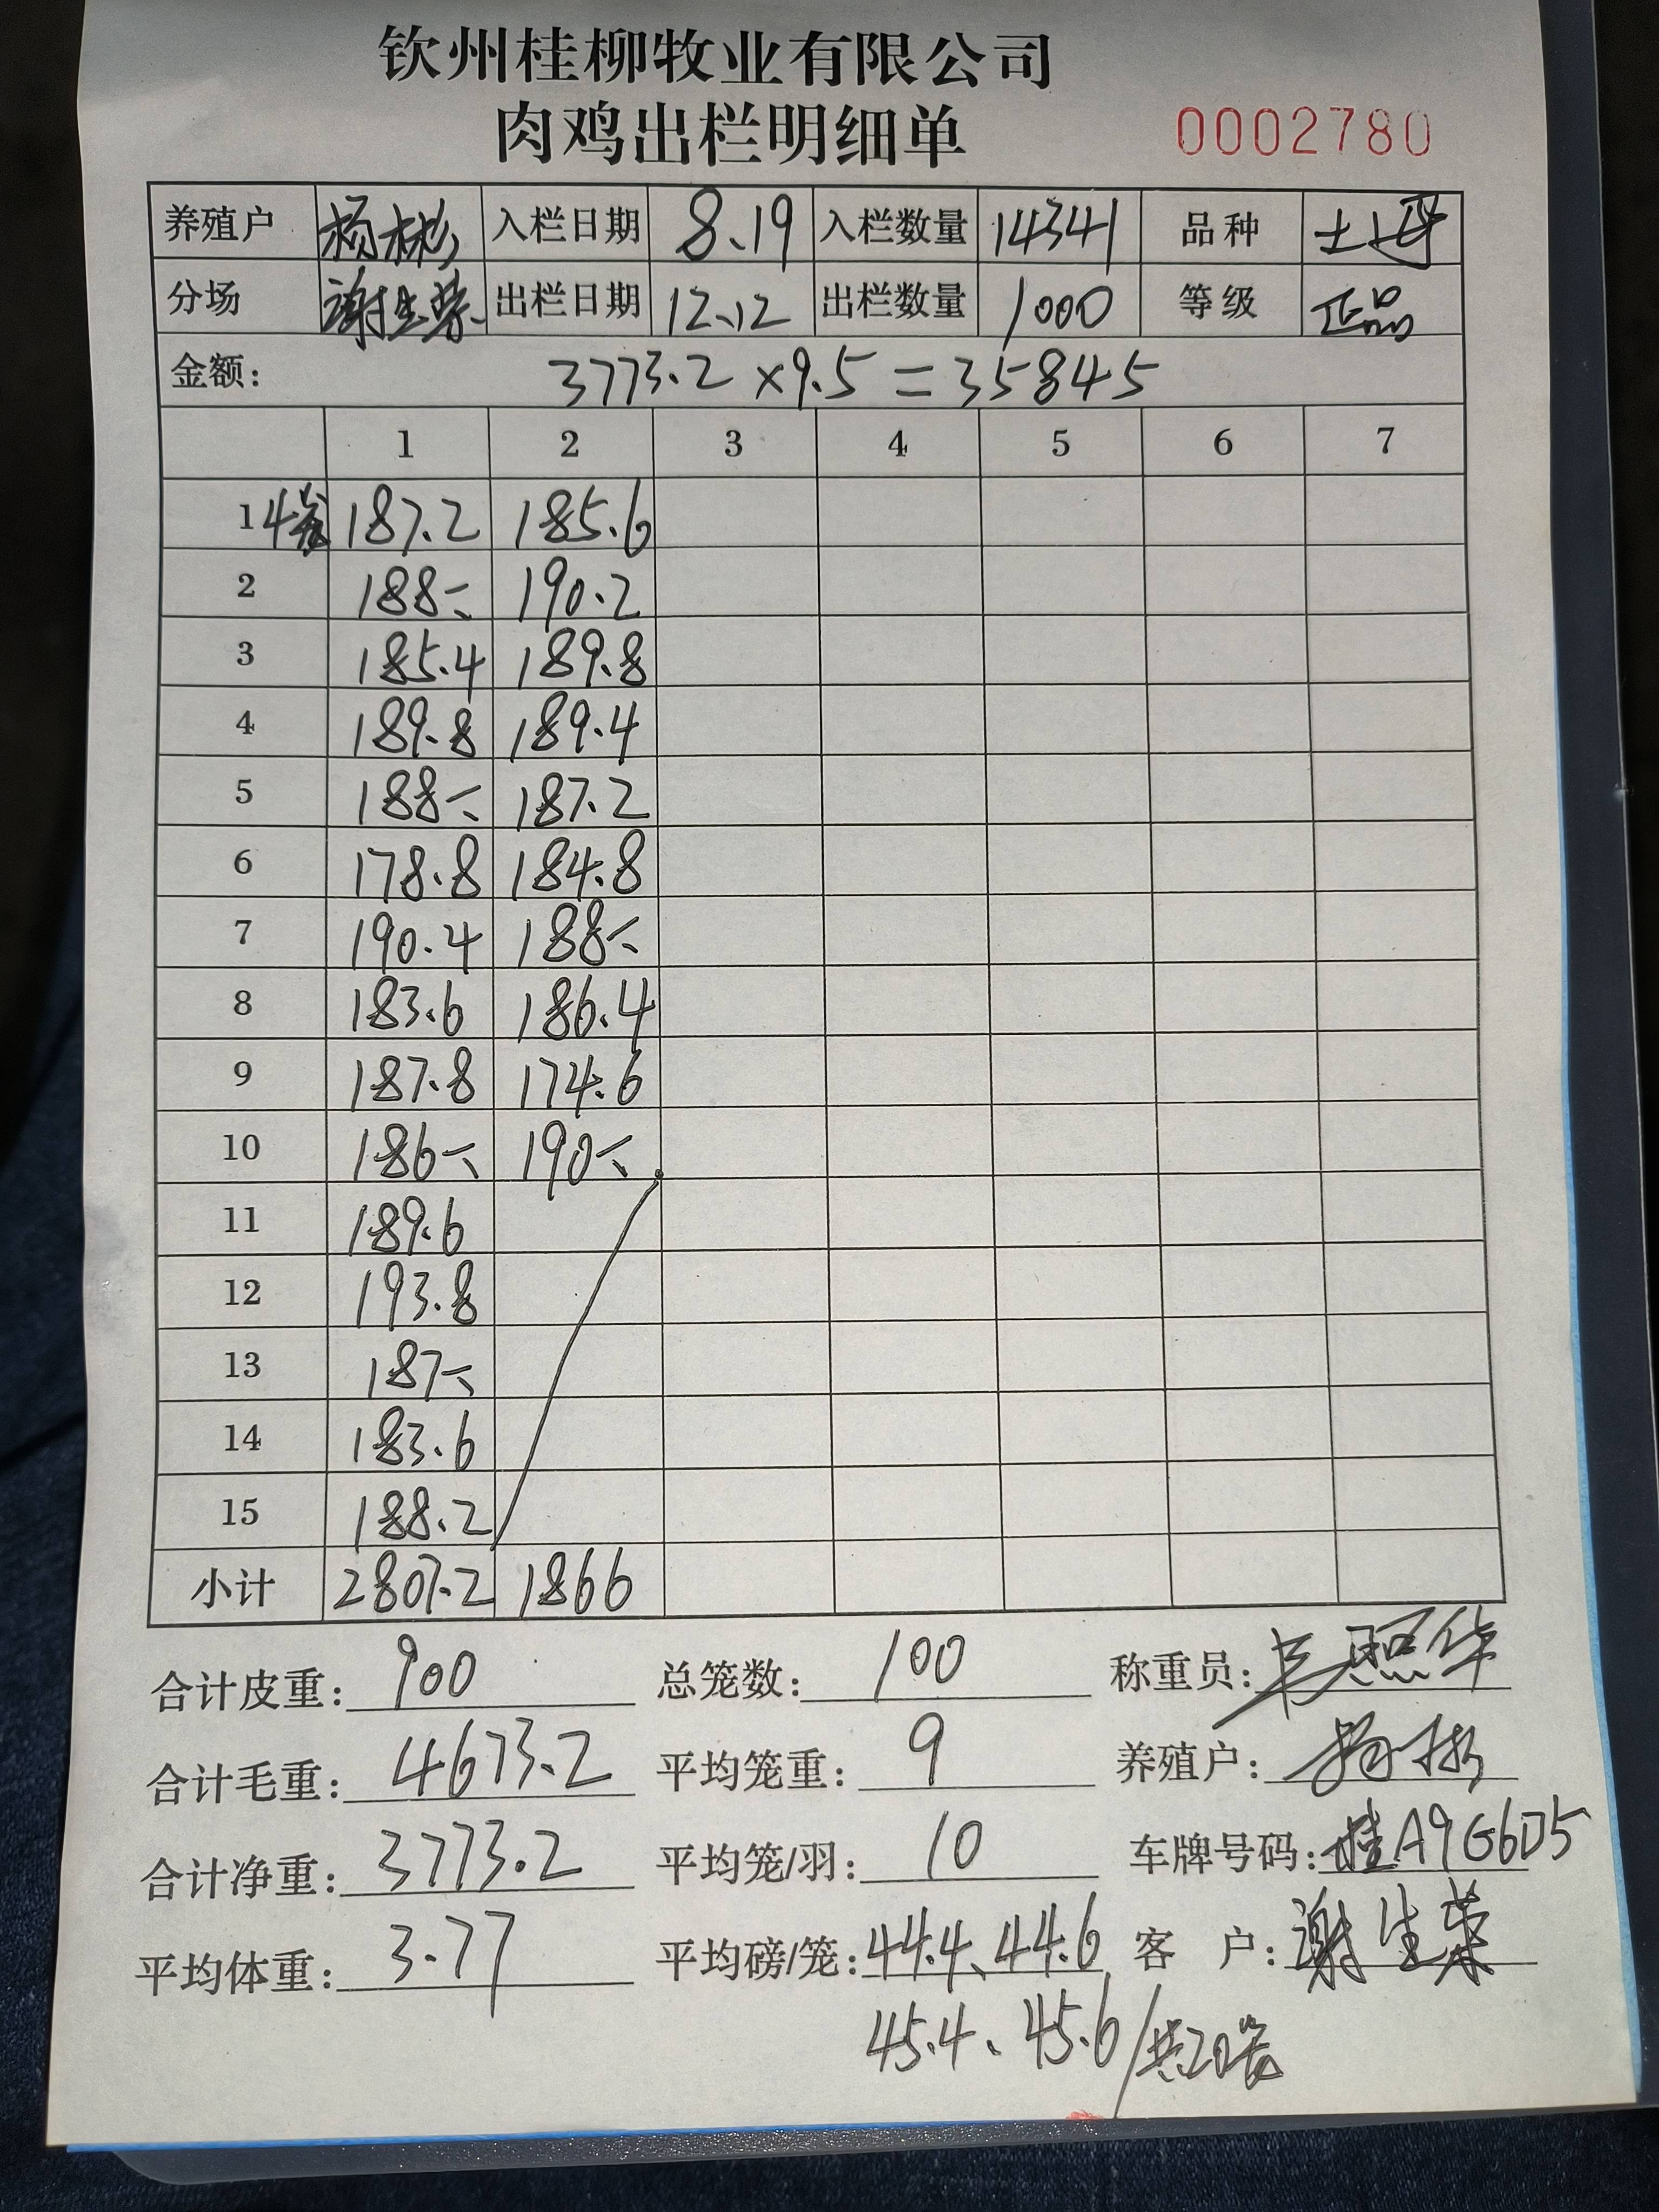 钦州桂柳牧业有限公司
肉鸡出栏明细单 0002780
养殖户 杨彬 入栏日期 8.19 入栏数量 14341 品种 土
分场 谢生荣 出栏日期 12.12 出栏数量 1000 等级 正品
金额: 3773.2×9.5=35845
1 2 3 4 5 6 7
1 4笼 187.2 185.6
2 188 190.2
3 185.4 189.8
4 189.8 189.4
5 188 187.2
6 178.8 184.8
7 190.4 188
8 183.6 186.4
9 187.8 174.6
10 186 190
11 189.6
12 193.8
13 187
14 183.6
15 188.2
小计 2807.2 1866
合计皮重: 900 总笼数: 100 称重员: 照华
合计毛重: 4673.2 平均笼重: 9 养殖户: 杨彬
合计净重: 3773.2 平均笼/羽: 10 车牌号码: 桂A9G6D5
平均体重: 3.77 平均磅/笼: 44.4、44.6 客 户: 谢生荣
45.4、45.6/共20笼